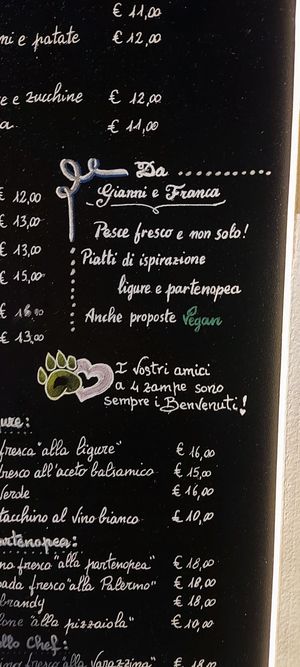 € 11,00
e patate € 12,00
e zucchine € 12,00
€ 11,00
Da ............
Gianni e Franca
€ 12,00
€ 13,00
Pesce fresco e non solo!
€ 13,00
Piatti di ispirazione
€ 15,00
ligure e partenopea
Anche proposte Vegan
€ 13,00
I Vostri amici
a 4 zampe sono
sempre i Benvenuti!
fresca "alla ligure" € 16,00
fresco all'aceto balsamico € 15,00
€ 16,00
al vino bianco € 10,00
fresco "alla partenopea" € 18,00
fresco "alla Palermo" € 18,00
brandy € 18,00
"alla pizzaiola" € 10,00
Chef: